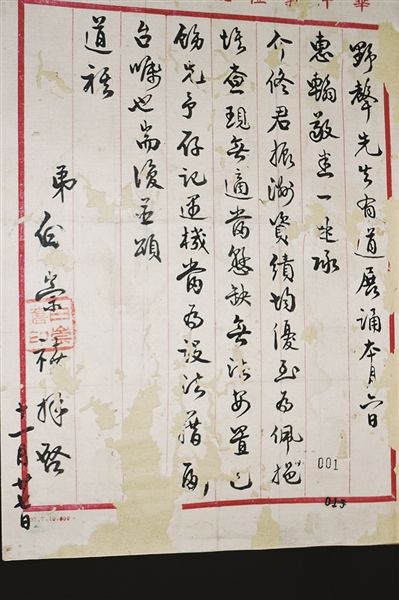 野聲先生有道展誦本月六日
惠翰敬悉一一承
介佟君振洲資績均優至為佩挹
惟查現無適當懸缺無法安置已
飭先予存記遇機當為設法藉酬
台囑也耑復並頌
道祺
弟白崇禧拜啓
十一月廿日
001
015